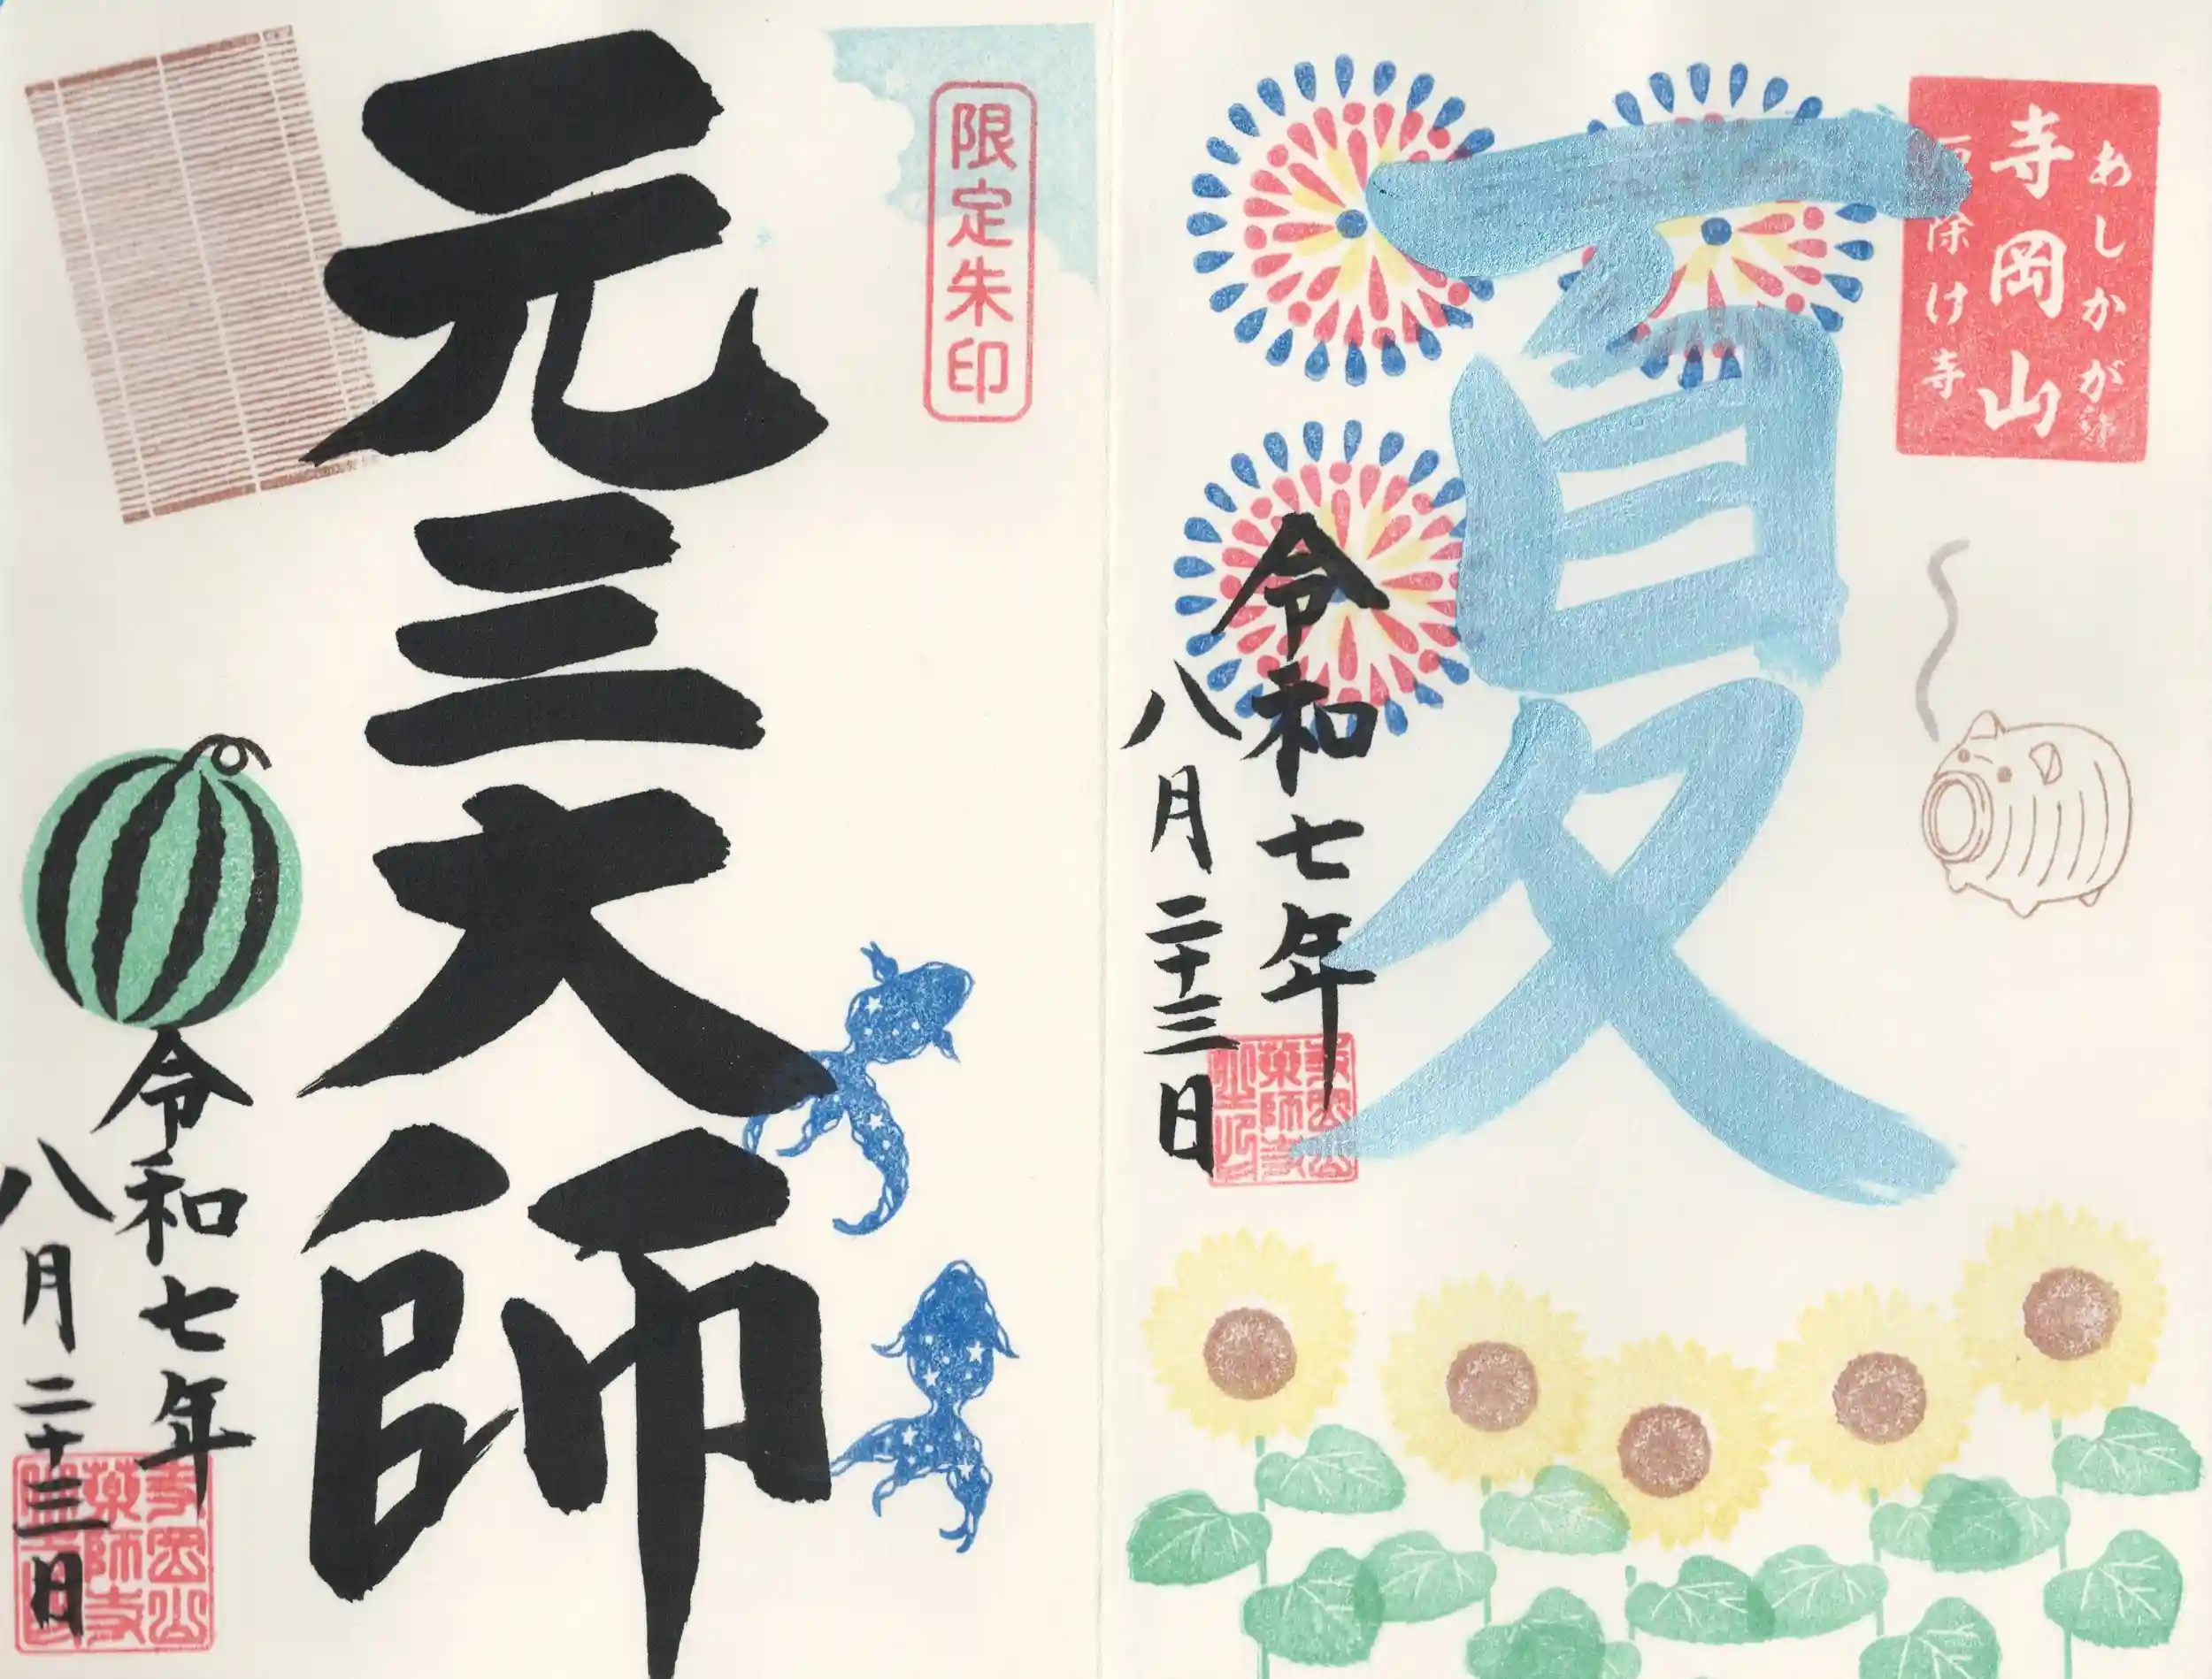 あしかが
寺岡山
厄除け寺
夏
令和七年
八月二十三日
寺岡山
薬師寺
之印
限定朱印
元三大師
令和七年
八月二十三日
寺岡山
薬師寺
之印